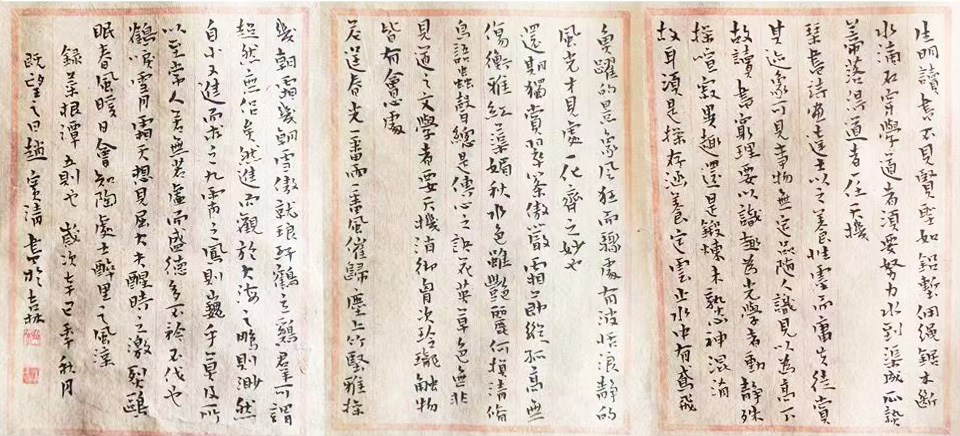 生明讀書不見賢聖如鉛槧傭繩鋸木斷
水滴石穿學道者須要努力水到渠成瓜熟
蒂落得道者一任天機
琴書詩畫達士以之養性靈而庸夫徒賞
其迹象可見事物無定品隨人識見以為高下
故讀書窮理要以識趣為先學者動靜殊
操喧寂異趣還是鍛煉未熟心神混淆
故耳須是操存涵養定雲止水中有鳶飛
魚躍的景象風狂雨驟處有波恬浪靜的
風光才見處一化齊之妙也
還期獨賞翠篠傲嚴霜節縱孤高無
傷衡雅紅蕖媚秋水色雖艷麗何損清修
鳥語蟲聲總是傳心之訣花英草色無非
見道之文學者要天機清徹胸次玲瓏觸物
皆有會心處
君送春光一番雨一番風催歸塵土竹堅雅操
幾朝霜幾朝雪傲就琅玕鶴立雞群可謂
超然無侶矣然進而觀於大海之鵬則渺然
自小又進而求之九霄之鳳則巍乎莫及所
以至常人若無若虛而盛德多不矜不伐也
鶴唳雪月霜天想見屈大夫醒時之激烈鷗
眠春風暖日會知陶處士醉里之風流
錄菜根譚五則也 歲次辛巳年秋月
既望之日趙寶清書於吉林